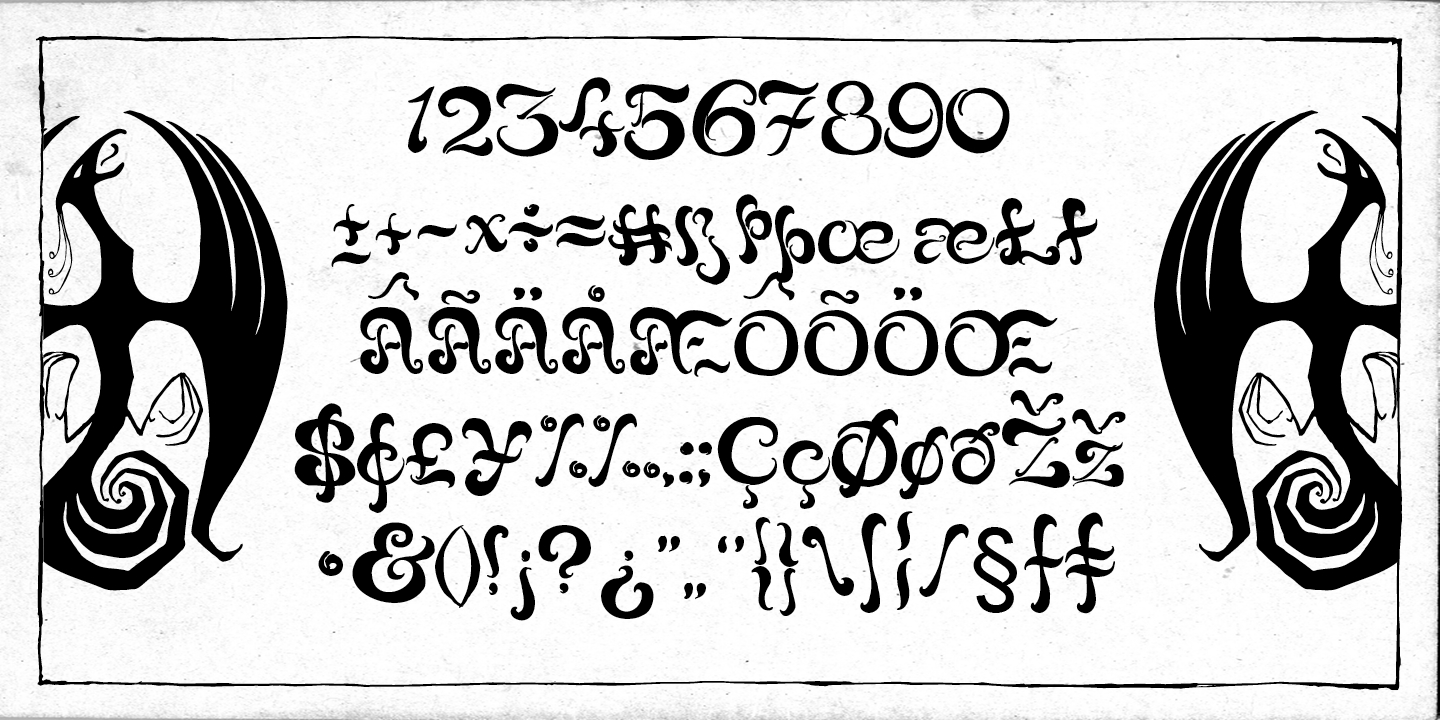 1234567890
±+−×÷≈#ßÞþœæ£ƒ
ÂÃÄÅÆÔÕÖŒ
$¢£¥%‰.,:;ÇçØøðŽž
•&()!¡?¿”„“‘{}\|¦/§†‡